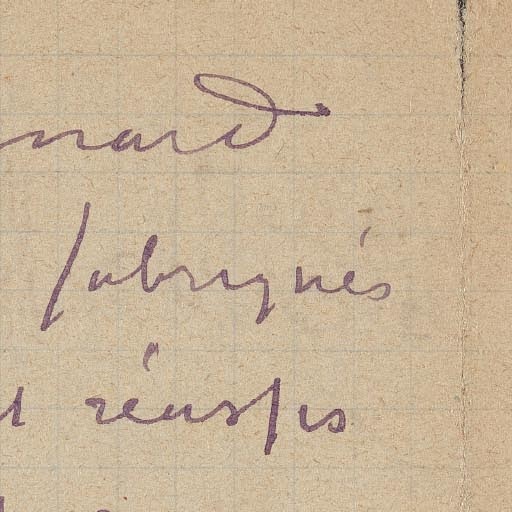 nard
fabriqués
réussis